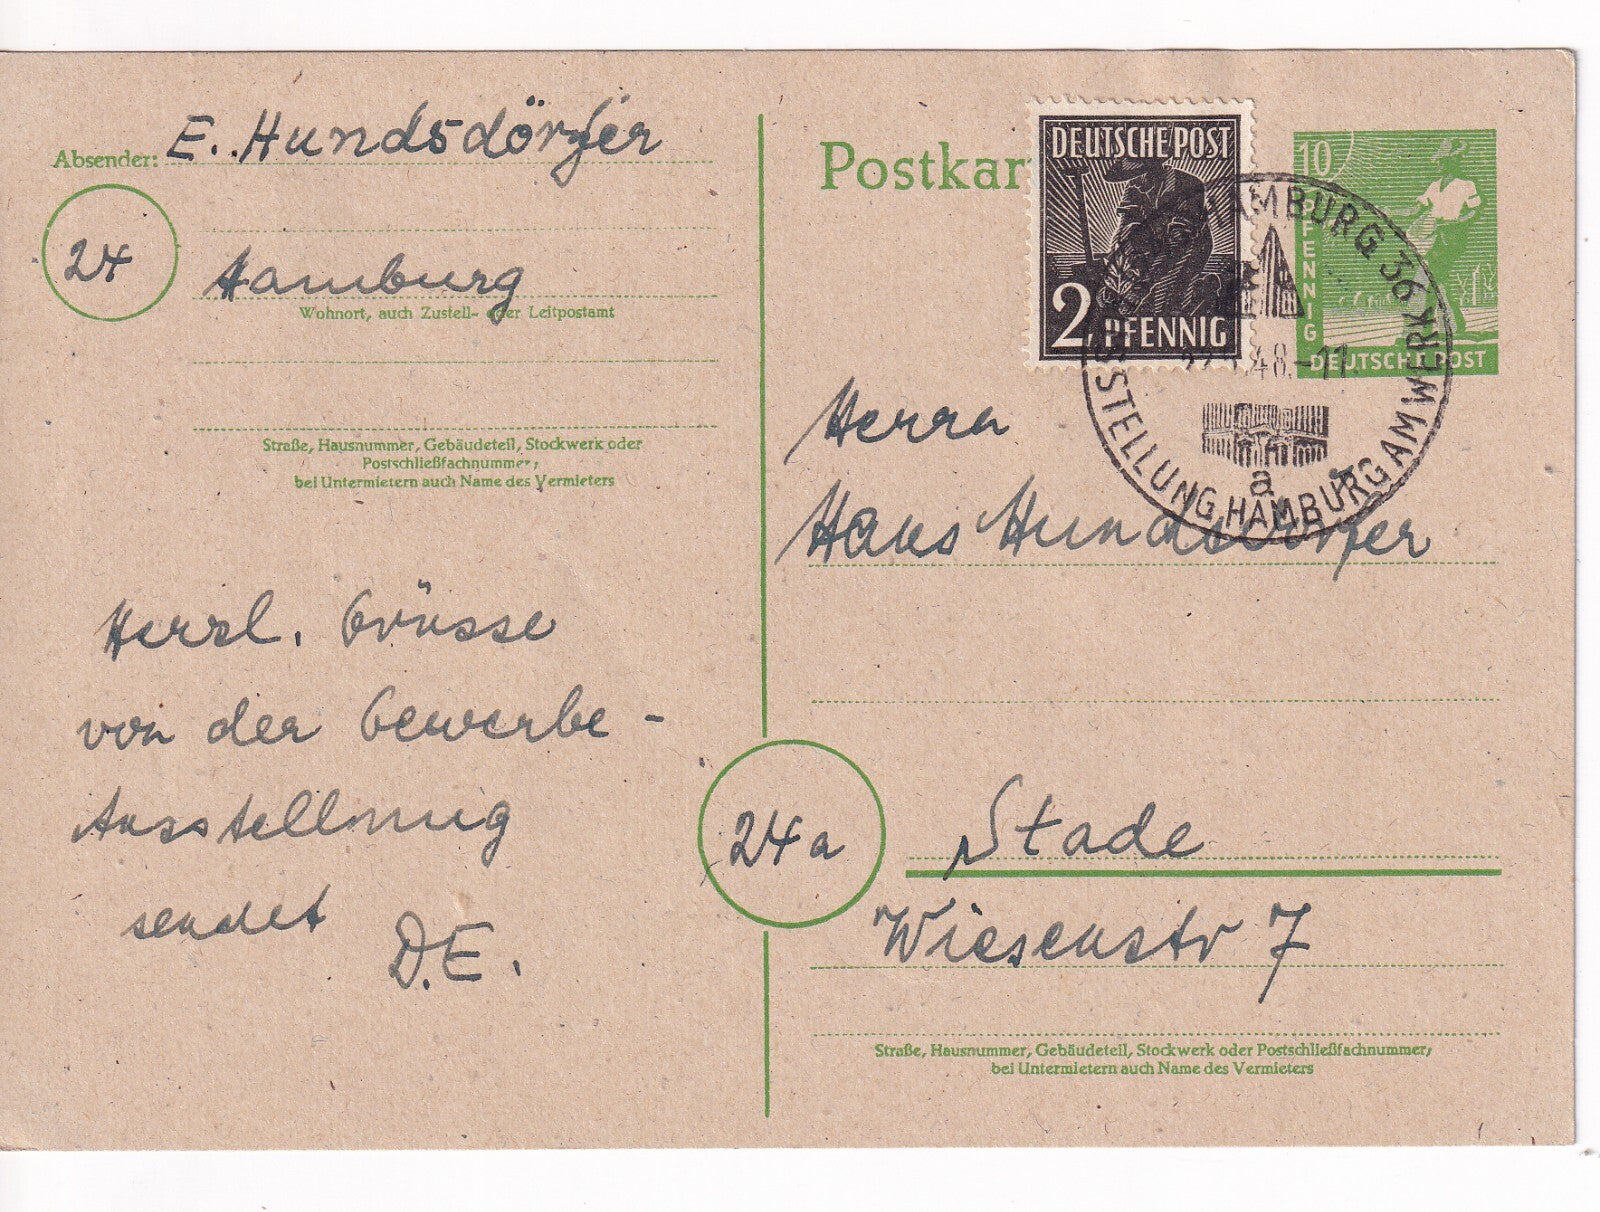 Absender: E. Hundsdörfer
24
Hamburg
Wohnort, auch Zustell- oder Leitpostamt
Straße, Hausnummer, Gebäudeteil, Stockwerk oder
Postschließfachnummer,
bei Untermietern auch Name des Vermieters
Herzl. Grüsse
von der Gewerbe-
Ausstellung
sendet
D.E.
Postkar
DEUTSCHE POST
2 PFENNIG
10
PFENNIG
DEUTSCHE POST
HAMBURG 36
48.-11
a
STELLUNG HAMBURG AM WERK
Herrn
Hans Hundsdörfer
24a
Stade
Wiesenstr 7
Straße, Hausnummer, Gebäudeteil, Stockwerk oder Postschließfachnummer,
bei Untermietern auch Name des Vermieters